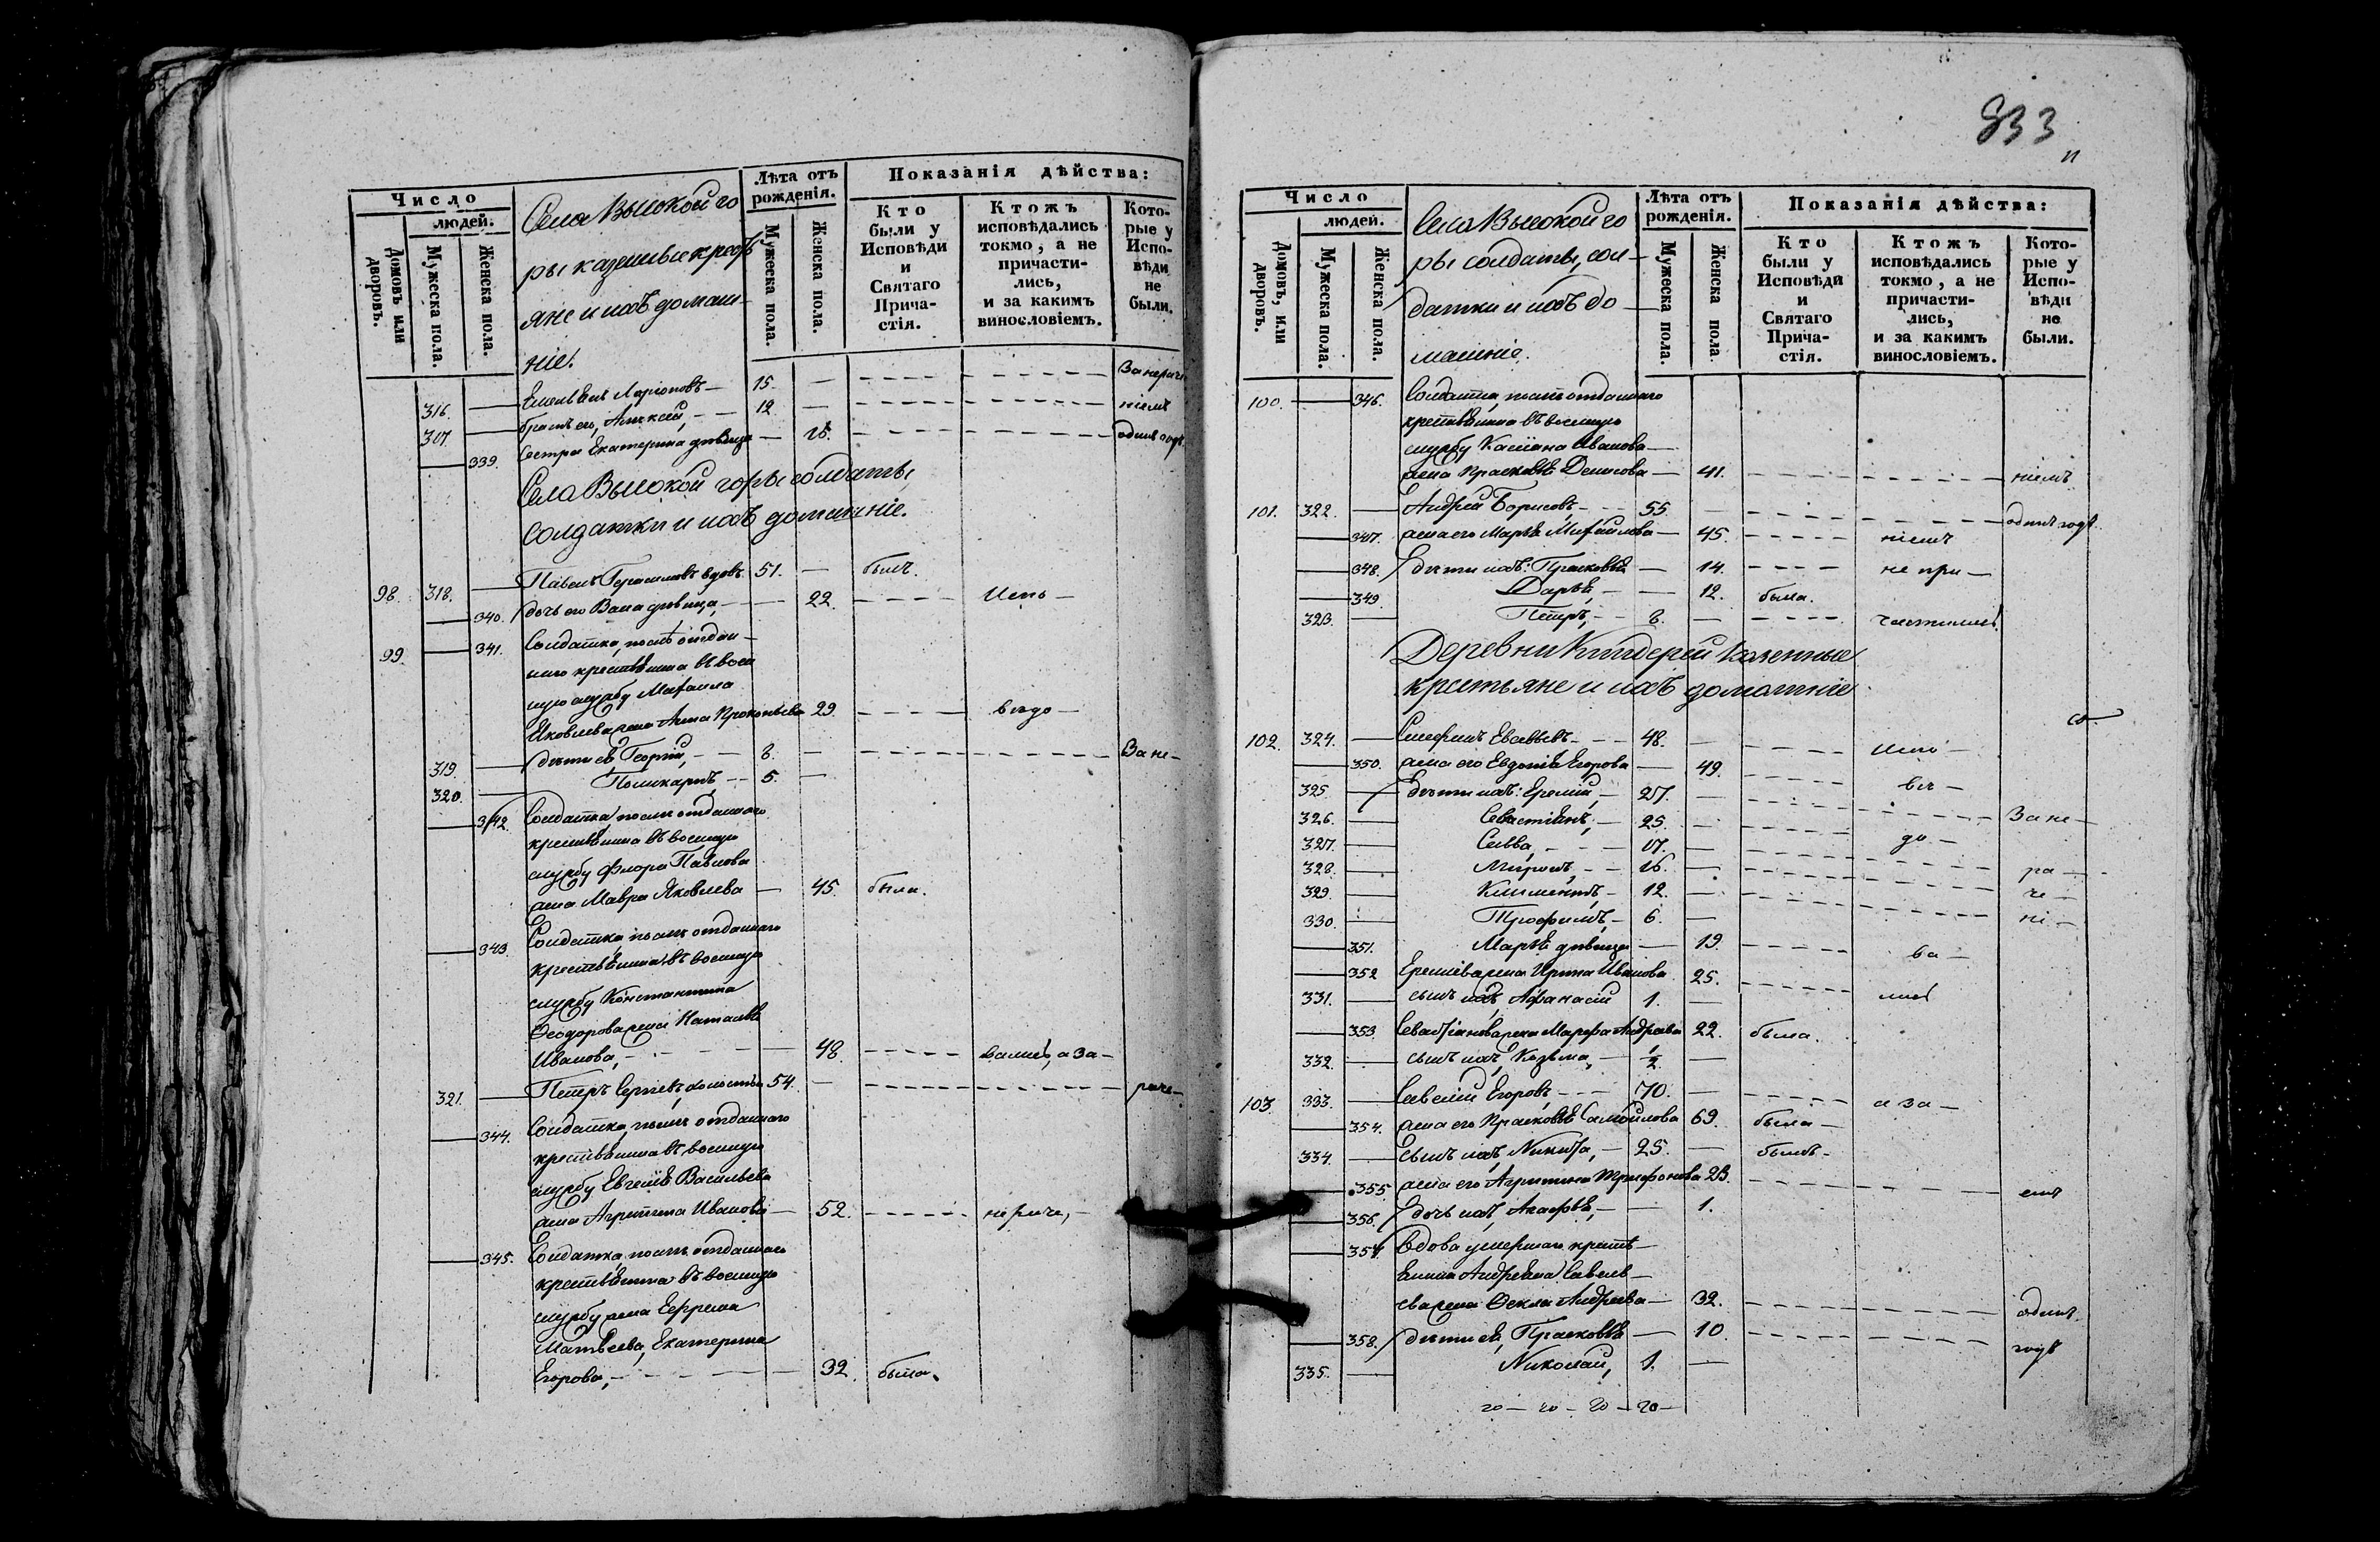 Число
людей.
Домовъ или дворовъ.
Мужеска пола.
Женска пола.
Села Высокой го
ры казенные кресть
яне и ихъ домаш-
ніе.
Лѣта отъ рожденія.
Мужеска пола.
Женска пола.
Показанія дѣйства:
Кто были у Исповѣди и Святаго Прича- стія.
Ктожъ исповѣдались токмо, а не причасти- лись, и за какимъ винословіемъ.
Кото- рые у Испо- вѣди не были.
316. Емельянъ Ларіоновъ 15. За нераче
317. братъ его, Алексѣй, 12. ніемъ
339. Сестра Екатерина дѣвица 25. одинъ годъ
Села Высокой горы солдаты,
солдатки и ихъ домашніе.
98. 318. Павелъ Герасимовъ вдовъ 51. былъ.
340. дочь его Васса дѣвица, 22. Испо-
99. 341. Солдатка, послѣ отдан-
наго крестьянина въ воен
ную службу Михаила
Яковлева жена Анна Прокопьева 29. вѣдо-
319. дѣти ея, Георгій, 8. За не-
320. Поликарпъ 5.
342. Солдатка, послѣ отданнаго
крестьянина въ военную
службу Флора Павлова
жена Мавра Яковлева 45. была.
343. Солдатка, послѣ отданнаго
крестьянина въ военную
службу Константина
Ѳеодорова жена Наталья
Иванова, 48. вались, а за-
321. Петръ Сергѣевъ, холостъ 54. раче-
344. Солдатка, послѣ отданнаго
крестьянина въ военную
службу Евгенія Васильева
жена Агрипина Иванова 52. нераче,-
345. Солдатка, послѣ отданнаго
крестьянина въ военную
службу жена Ефрема
Матвѣева, Екатерина
Егорова, 32. была.
833
Число
людей.
Домовъ, или дворовъ.
Мужеска пола.
Женска пола.
Села Высокой го
ры солдаты, сол-
датки и ихъ до-
машніе.
Лѣта отъ рожденія.
Мужеска пола.
Женска пола.
Показанія дѣйства:
Кто были у Исповѣди и Святаго Прича- стія.
Ктожъ исповѣдались токмо, а не причасти- лись, и за какимъ винословіемъ.
Кото- рые у Испо- вѣди не были.
100. 346. Солдатка, послѣ отданнаго
крестьянина въ военную
службу Касіана Иванова
жена Прасковья Денисова 41. ніемъ
101. 322. Андрей Борисовъ 55. одинъ годъ.
347. жена его Марья Михайлова 45. ніемъ
348. дѣти ихъ: Прасковья 14. не при-
349. Дарья, 12. была.
323. Петръ, 8. частились.
Деревни Киндерей казенные
крестьяне и ихъ домашніе
102. 324. Евсевьевъ 48. Испо-
350. жена его Евдокія Егорова 49. вѣ-
325. дѣти ихъ: Еремѣй, 27.
326. Севастіянъ, 25. За не-
327. Савва, 17. до-
328. Миронъ, 16. ра-
329. Климентъ, 12. че-
330. Трофимъ, 6. ні-
351. Марья дѣвица 19. ва-
352 Еремѣева жена Ирина Иванова 25.
331. сынъ ихъ, Афанасій 1. лись
353. Севастіянова жена Марфа Андреева 22. была.
332. сынъ ихъ, Козьма, 1/2
103. 333. Савелій Егоровъ, 70. а за-
354. жена его Прасковья Самойлова 69. была
334. сынъ ихъ, Никита, 25. былъ
355. жена его Агрипина Трифонова 23. емъ
356. дочь ихъ, Агафья, 1.
357. Вдова умершаго кресть-
янина Андреяна Савель-
ева жена Ѳекла Андреева 32. одинъ
358. дѣти ея, Прасковья 10. годъ
335. Николай, 1.
20 - 20 - 20 - 20